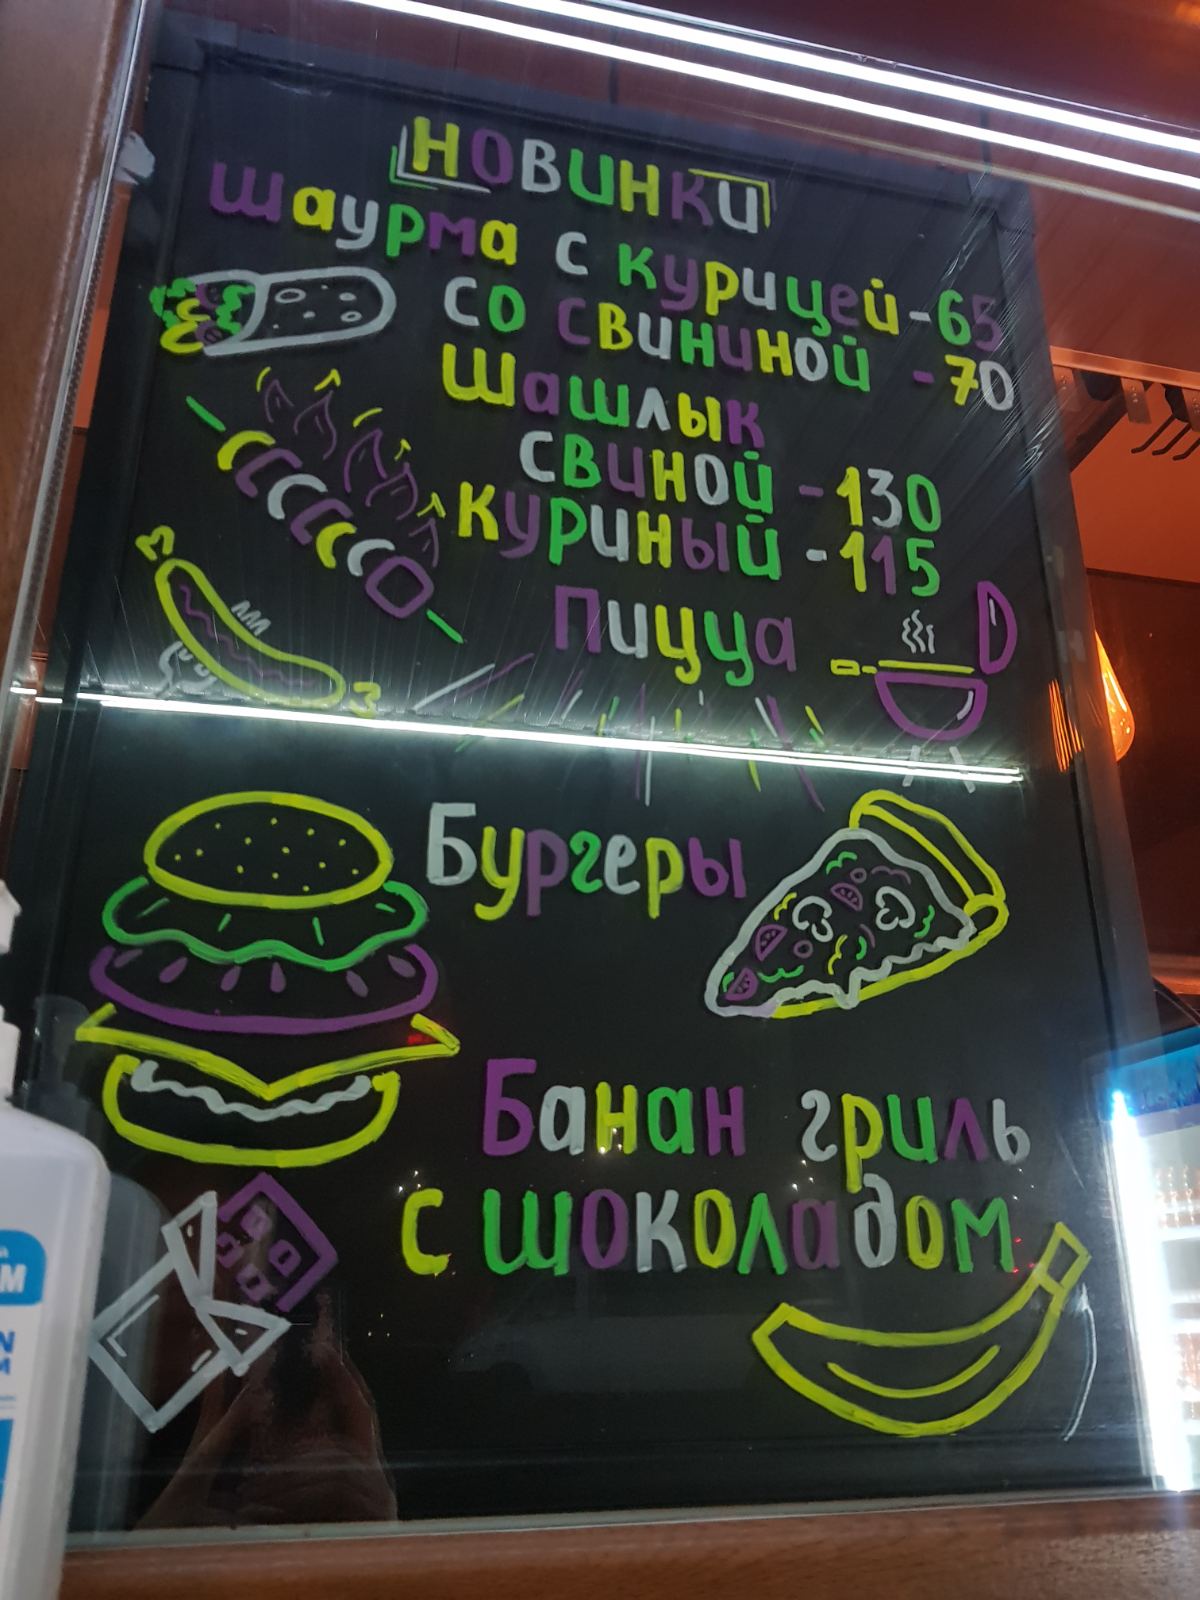 Новинки
Шаурма с курицей-65
со свининой -70
Шашлык
свиной -130
куриный -115
Пицца
Бургеры
Банан гриль
с шоколадом